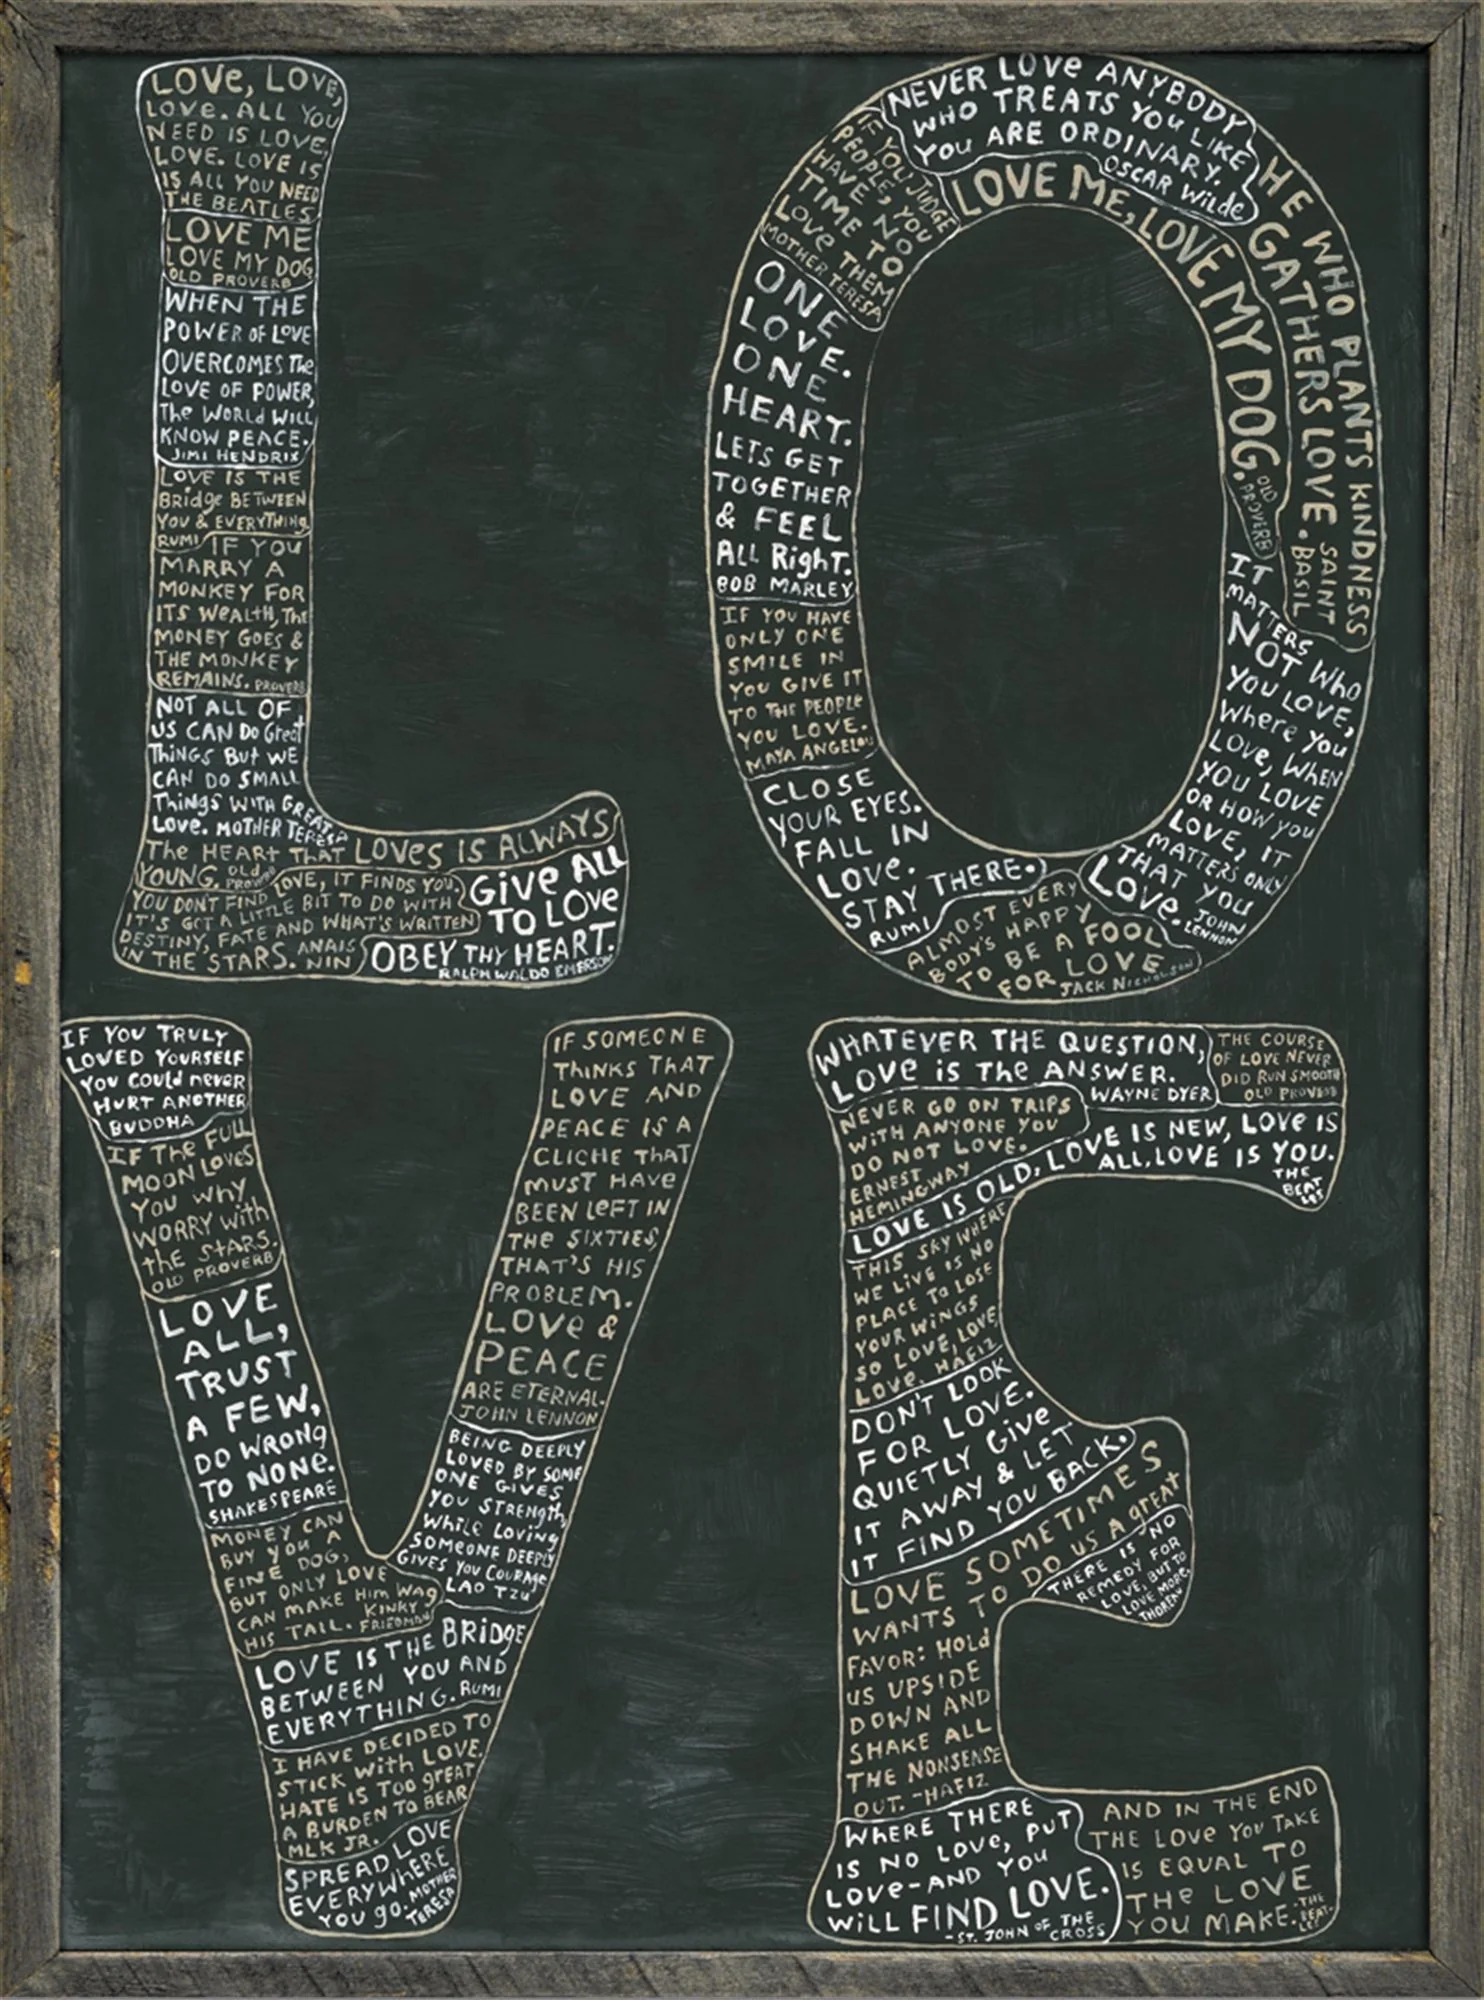 LOVE, LOVE,
LOVE. ALL YOU
NEED IS LOVE
LOVE. LOVE IS
IS ALL YOU NEED
THE BEATLES
LOVE ME
LOVE MY DOG
OLD PROVERB
WHEN THE
POWER OF LOVE
OVERCOMES The
LOVE OF POWER,
The WORLD WILL
KNOW PEACE.
JIMI HENDRIX
LOVE IS THE
Bridge BETWEEN
YOU & EVERYTHING
RUMI
IF YOU
MARRY A
MONKEY FOR
ITS WEALTH, The
MONEY GOES &
THE MONKEY
REMAINS. PROVERB
NOT ALL OF
US CAN DO Great
THINGS BUT WE
CAN DO SMALL
Things WITH GREAT
LOVE. MOTHER TERESA
The HEART THAT LOVES IS ALWAYS
YOUNG. OLD PROVERB
YOU DON'T FIND LOVE, IT FINDS YOU.
IT'S GOT A LITTLE BIT TO DO WITH
DESTINY, FATE AND WHAT'S WRITTEN
IN THE STARS. ANAIS NIN
GIVE ALL
TO LOVE
OBEY THY HEART.
RALPH WALDO EMERSON
NEVER LOVE ANYBODY
WHO TREATS YOU LIKE
YOU ARE ORDINARY.
OSCAR WILDE
IF YOU JUDGE
PEOPLE, YOU
HAVE NO
TIME TO
LOVE THEM
MOTHER TERESA
LOVE ME, LOVE MY DOG.
OLD PROVERB
HE WHO PLANTS KINDNESS
GATHERS LOVE. SAINT BASIL
ONE
LOVE.
ONE
HEART.
LETS GET
TOGETHER
& FEEL
ALL RighT.
BOB MARLEY
IF YOU HAVE
ONLY ONE
SMILE IN
YOU GIVE IT
TO THE PEOPLE
YOU LOVE.
MAYA ANGELOU
CLOSE
YOUR EYES.
FALL IN
LOVE.
STAY THERE.
RUMI
IT
MATTERS
NOT Who
YOU LOVE,
Where YOU
LOVE, WHEN
YOU LOVE
OR HOW YOU
LOVE, IT
MATTERS ONLY
THAT YOU
LOVE. JOHN LENNON
ALMOST EVERY
BODY'S HAPPY
TO BE A FOOL
FOR LOVE
JACK NICHOLSON
IF YOU TRULY
LOVED YOURSELF
YOU COULD never
HURT ANOTHER
BUDDHA
IF THE FULL
MOON LOVES
YOU WHY
WORRY with
the STARS.
OLD PROVERB
LOVE
ALL,
TRUST
A FEW,
DO WRONG
TO NONE.
SHAKESPEARE
MONEY CAN
BUY YOU A
FINE DOG,
BUT ONLY LOVE
CAN MAKE HIM WAG
HIS TAIL. KINKY FRIEDMAN
IF SOMEONE
THINKS THAT
LOVE AND
PEACE IS A
CLICHE THAT
MUST HAVE
BEEN LEFT IN
THE SIXTIES,
THAT'S HIS
PROBLEM.
LOVE &
PEACE
ARE ETERNAL.
JOHN LENNON
BEING DEEPLY
LOVED BY SOME
ONE GIVES
YOU STRENGTH,
While LOVING
SOMEONE DEEPLY
GIVES YOU COURAGE
LAO TZU
LOVE IS THE BRIDGE
BETWEEN YOU AND
EVERYTHING. RUMI
I HAVE DECIDED TO
STICK WITH LOVE.
HATE IS TOO GREAT
A BURDEN TO BEAR
MLK JR.
SPREAD LOVE
EVERYWHERE
YOU go. MOTHER TERESA
WHATEVER THE QUESTION,
LOVE is The ANSWER.
WAYNE DYER
THE COURSE
OF LOVE NEVER
DID RUN SMOOTH
OLD PROVERB
NEVER GO ON TRIPS
WITH ANYONE YOU
DO NOT LOVE.
ERNEST
HEMINGWAY
LOVE IS OLD, LOVE IS NEW, LOVE IS
ALL, LOVE IS YOU.
THE BEATLES
THIS SKY WHERE
WE LIVE IS NO
PLACE TO LOSE
YOUR WINGS
SO LOVE, LOVE,
LOVE. HAFIZ
DON'T LOOK
FOR LOVE.
QUIETLY GIVE
IT AWAY & LET
IT FIND YOU BACK.
LOVE SOMETIMES
WANTS TO DO US A GREAT
FAVOR: HOLD
US UPSIDE
DOWN AND
SHAKE ALL
THE NONSENSE
OUT. -HAFIZ
THERE IS NO
REMEDY FOR
LOVE, BUT TO
LOVE MORE.
THOREAU
WHERE THERE
IS NO LOVE, PUT
LOVE-AND YOU
WILL FIND LOVE.
-ST. JOHN OF THE CROSS
AND IN THE END
THE LOVE YOU TAKE
IS EQUAL TO
THE LOVE
YOU MAKE. THE BEATLES